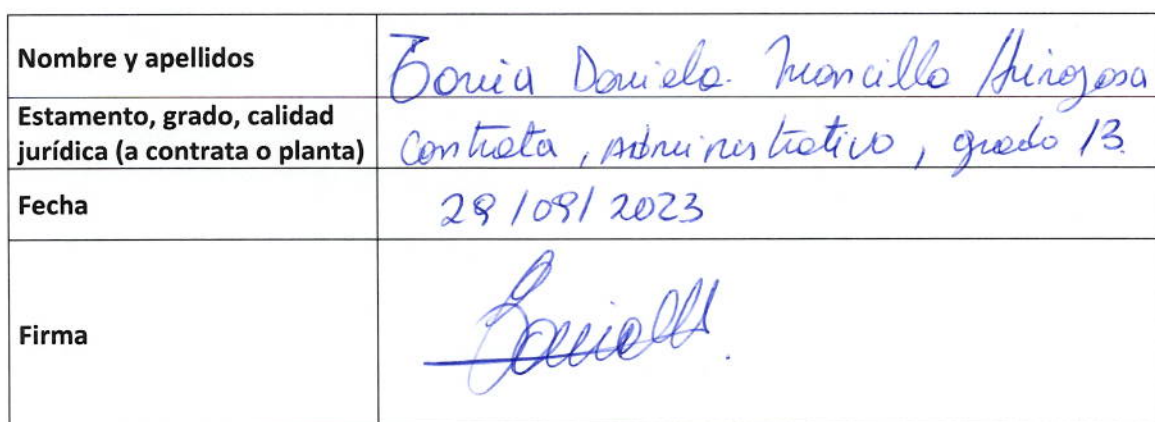 Nombre y apellidos
Sonia Daniela Mancilla Hinojosa
Estamento, grado, calidad
jurídica (a contrata o planta)
Contrata, Administrativo, grado 13.
Fecha
29/09/2023
Firma